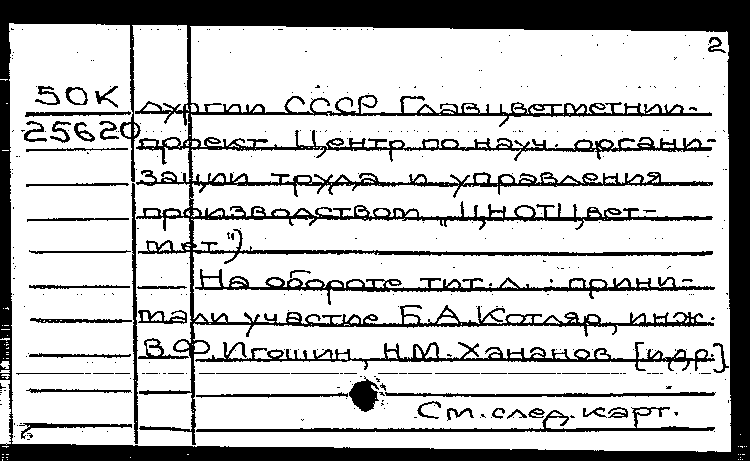 2
50К
25620
лургии СССР Главцветметнии-
проект. Центр по науч. органи-
зации труда и управления
производством „ЦНОТЦвет-
мет").
На обороте тит. л. : прини-
мали участие Б.А.Котляр, инж.
В.Ф.Игошин, Н.М.Хананов [и др.]
См. след. карт.